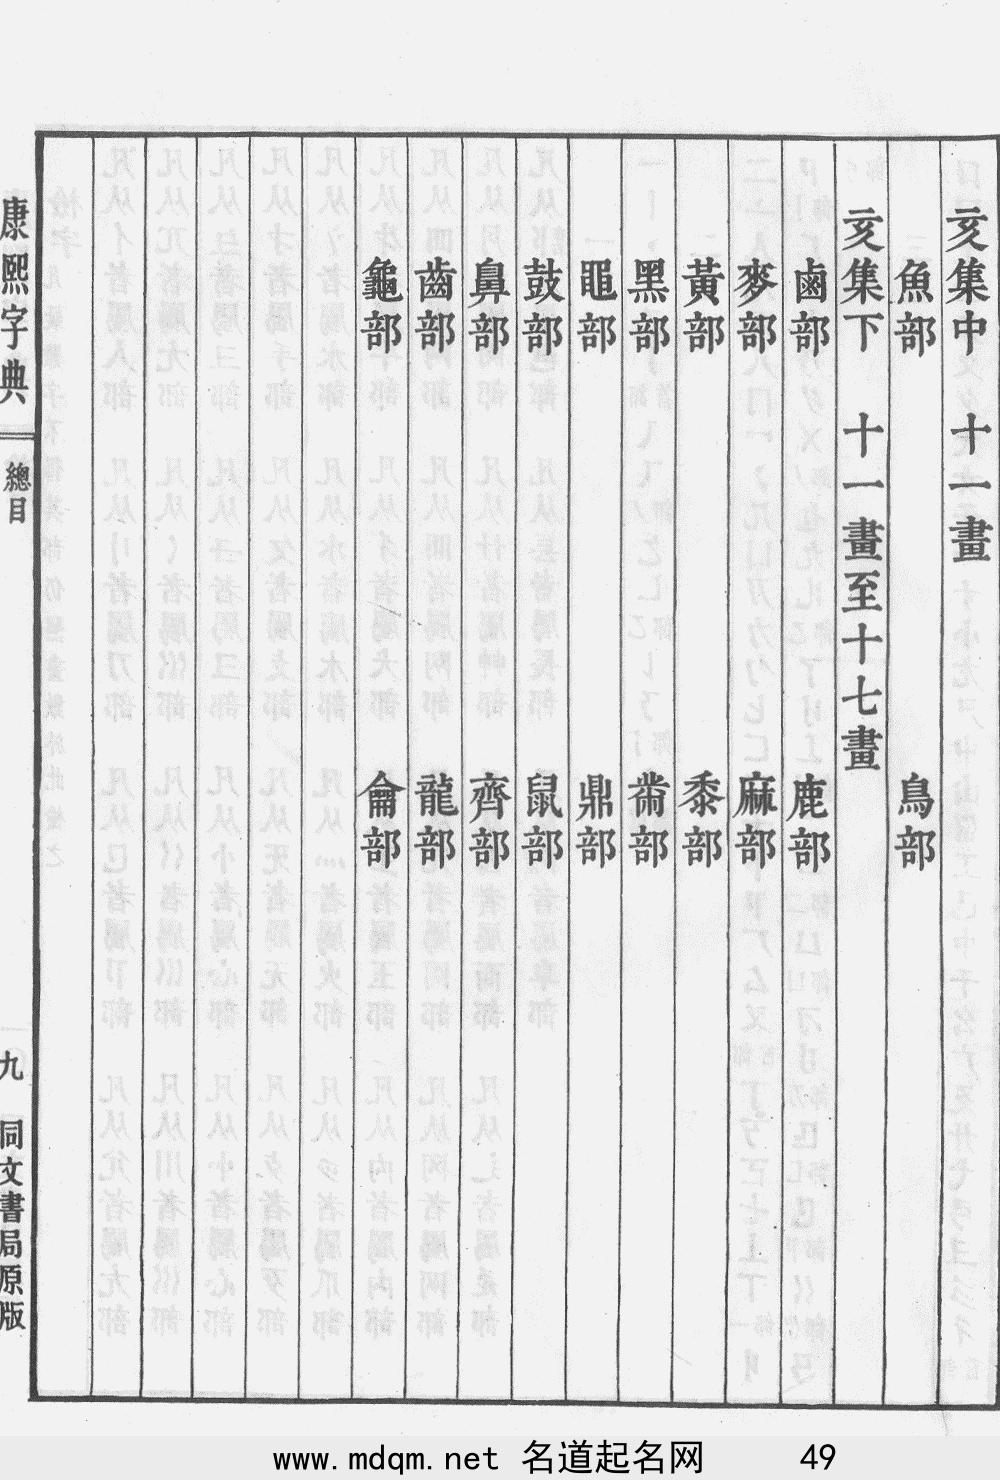 亥集中　十一畫
魚部　鳥部
亥集下　十一畫至十七畫
鹵部　鹿部
麥部　麻部
黃部　黍部
黑部　黹部
黽部　鼎部
鼓部　鼠部
鼻部　齊部
齒部　龍部
龜部　龠部
康熙字典　總目　九　同文書局原版
www.mdqm.net 名道起名网　49